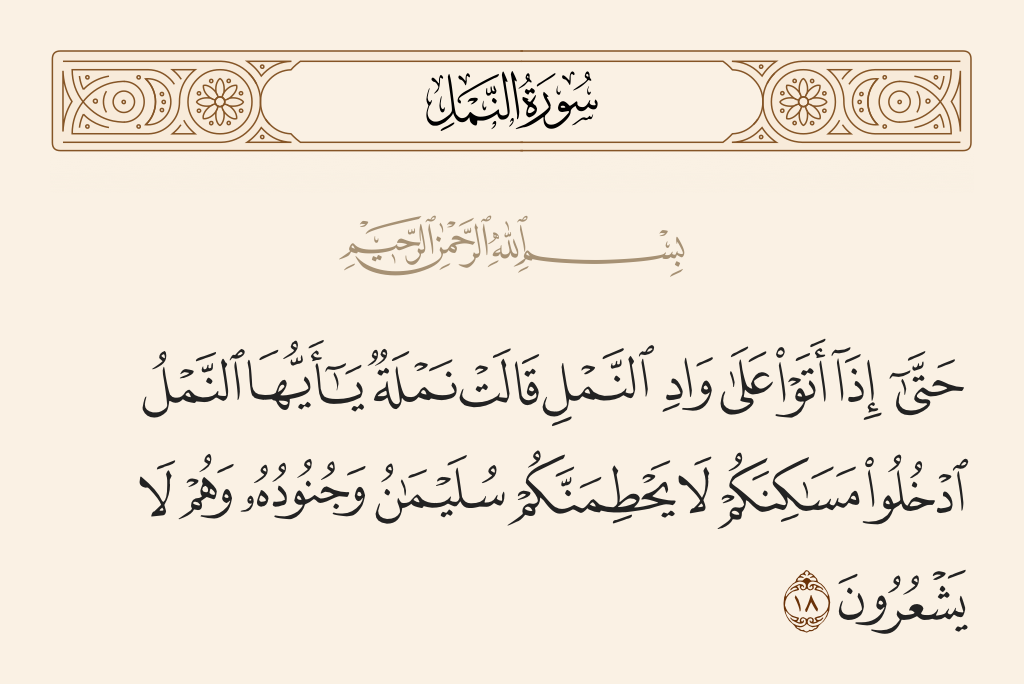 سُورَةُ النَّمْلِ
بِسْمِ ٱللَّهِ ٱلرَّحْمَٰنِ ٱلرَّحِيمِ
حَتَّىٰٓ إِذَآ أَتَوْا۟ عَلَىٰ وَادِ ٱلنَّمْلِ قَالَتْ نَمْلَةٌ يَـٰٓأَيُّهَا ٱلنَّمْلُ
ٱدْخُلُوا۟ مَسَـٰكِنَكُمْ لَا يَحْطِمَنَّكُمْ سُلَيْمَـٰنُ وَجُنُودُهُۥ وَهُمْ لَا
يَشْعُرُونَ ١٨